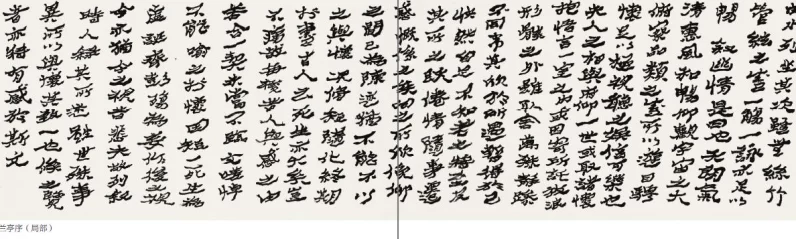 水列坐其次雖無絲竹
管絃之盛一觴一詠亦足以
暢叙幽情是日也天朗氣
清惠風和暢仰觀宇宙之大
俯察品類之盛所以遊目騁
懷足以極視聽之娛信可樂也
夫人之相與俯仰一世或取諸懷
抱悟言一室之內或因寄所託放浪
形骸之外雖取舍萬殊靜躁
不同當其欣於所遇暫得於己
快然自足不知老之將至及
其所之既倦情隨事遷
感慨係之矣向之所欣俛仰
之間已為陳迹猶不能不以
之興懷況脩短隨化終期
於盡古人云死生亦大矣豈
不痛哉每攬昔人興感之由
若合一契未嘗不臨文嗟悼
不能喻之於懷固知一死生為
虛誕齊彭殤為妄作後之視
今亦猶今之視昔悲夫故列叙
時人錄其所述雖世殊事
異所以興懷其致一也後之覽
者亦將有感於斯文
兰亭序（局部）